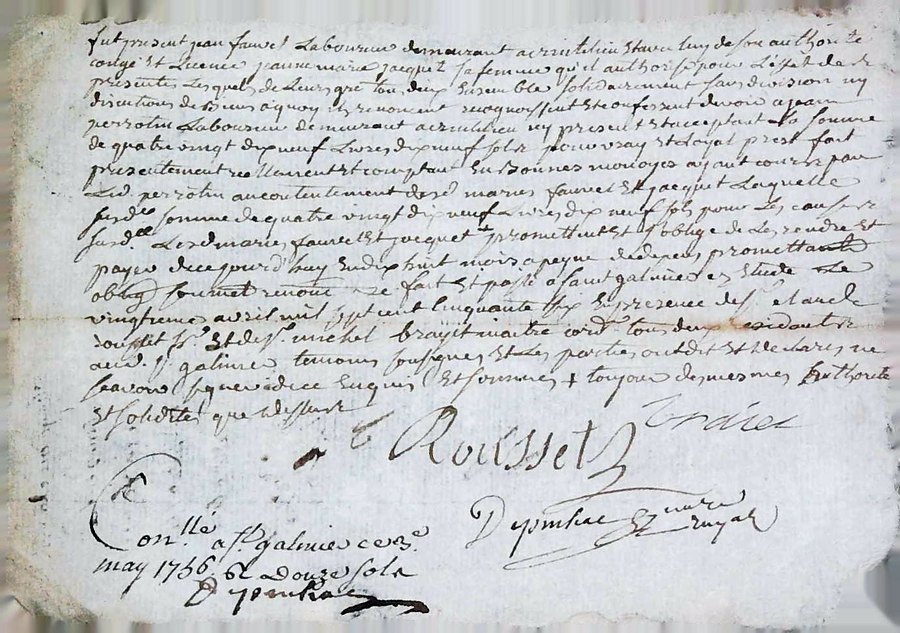 fut present jean fauvel Laboureur demeurant a et avec luy de son authorité
congé et Licence jeanne marie jacquet sa femme qu'il authorise pour l'effet de
presentes Lesquels de Leurs gré tous deux Ensemble solidairement sans division ny
discutions de Biens a quoy ils renoncent recognoissent et confessent devoir a jean
perrotin Laboureur demeurant a ny present et acceptant la somme
de quatre vingt dix neuf Livres dix neuf sols pour vray et Loyal prest fait
presentement reellement et comptant En Bonnes monoyes ayant cours par
Led perrotin au contentement desd mariés fauvel Et jacquet Laquelle
susd somme de quatre vingt dix neuf Livres dix neuf sols pour Les causes
susd. Lesd mariés fauvel Et jacquet promettent Et s'oblige de Les rendre et
payer de ce jourd'huy En dix huit mois a peyne de depens promettant
oblig soumet renon fait Et passé a saint galmier es Etude Le
vingtieme avril mil sept cent Cinquante six En presence de s.r claude
rousset Et de s.r michel maitre cord. tous deux residant
aud. s.t galmier temoins sousignés Et Les parties ont dit Et declarés ne
scavoir signer de ce Enquis Et sommés + toujour des mesmes Authorité
Et solidité que dessus
Rousset
Con.llé a s.t galmier ce 3.e
may 1756. R douze sols